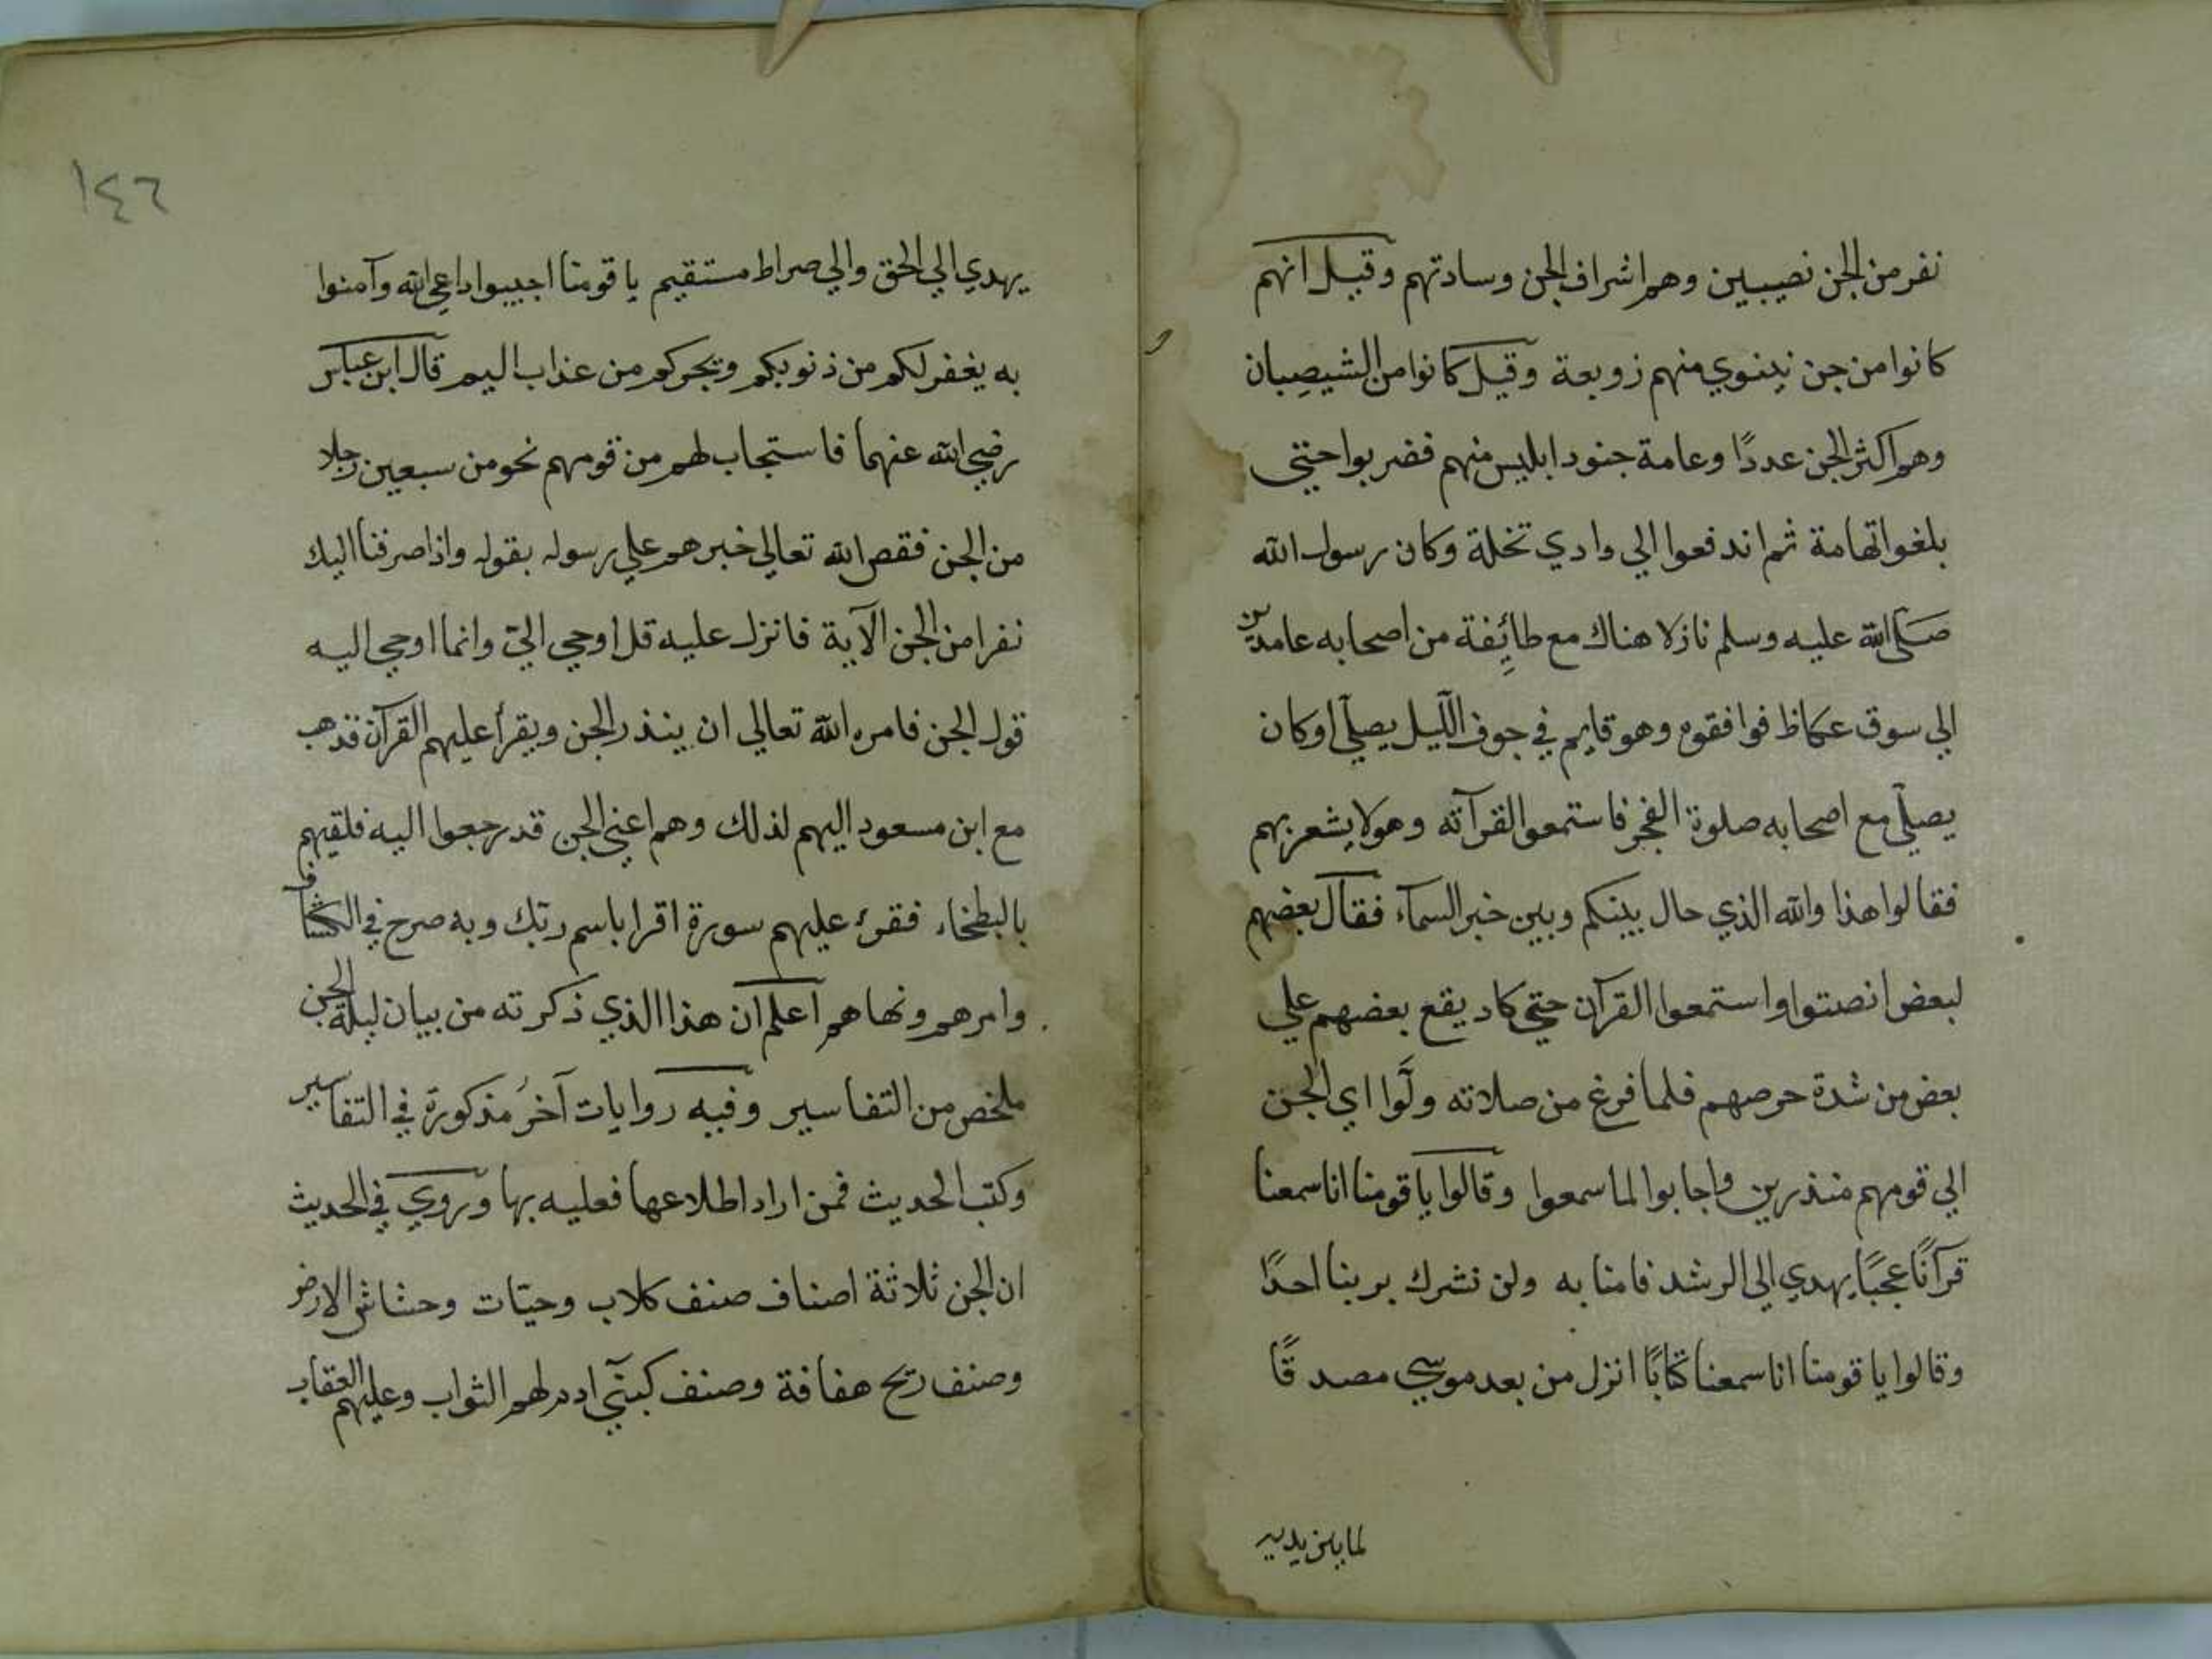 نفر من الجن نصيبين وهم اشراف الجن وسادتهم وقيل انهم
كانوا من جن نينوي منهم زوبعة وقيل كانوا من الشيصِبان
وهم اكثر الجن عددًا وعامة جنود ابليس منهم فضربوا حتي
بلغوا تهامة ثم اندفعوا الي وادي نخلة وكان رسول الله
صلي الله عليه وسلم نازلا هناك مع طائِفة من اصحابه عامدين
الي سوق عكاظ فوافقوه وهو قايم في جوف الليل يصلي او كان
يصلّي مع اصحابه صلوة الفجر فاستمعوا لقرآته وهو لا يشعر بهم
فقالوا هذا والله الذي حال بينكم وبين خبر السمآء فقال بعضهم
لبعض انصتوا واستمعوا القرآن حتي كاد يقع بعضهم علي
بعض من شدة حرصهم فلما فرغ من صلاته ولَّوا اي الجن
الي قومهم منذرين واجابوا لما سمعوا وقالوا يا قومنا انا سمعنا
قرآنًا عجبًا يهدي الي الرشد فامنا به ولن نشرك بربنا احدًا
وقالوا يا قومنا انا سمعنا كتابًا انزل من بعد موسي مصدقًا
لما بين يديه
١٤٦
يهدي الي الحق والي صراط مستقيم يا قومنا اجيبوا داعي الله وآمنوا
به يغفر لكم من ذنوبكم ويجركم من عذاب اليم قال ابن عباس
رضي الله عنهما فاستجاب لهم من قومهم نحو من سبعين رجلا
من الجن فقص الله تعالي خبرهم علي رسوله بقوله واذ صرفنا اليك
نفرا من الجن الآية فانزل عليه قل اوحي اليّ وانما اوحي اليه
قول الجن فامره الله تعالي ان ينذر الجن ويقرأ عليهم القرآن فذهب
مع ابن مسعود اليهم لذلك وهم اعني الجن قد رجعوا اليه فلقيهم
بالبطحاء فقرئ عليهم سورة اقرا باسم ربّك وبه صرح في الكشاف
وامرهم ونهاهم اعلم ان هذا الذي ذكرته من بيان ليلة الجن
ملخص من التفاسير وفيه روايات آخرُ مذكورة في التفاسير
وكتب الحديث فمن اراد اطلاعها فعليه بها وروي في الحديث
ان الجن ثلاثة اصناف صنف كلاب وحيّات وحشاش الارض
وصنف ريح هفافة وصنف كبني آدم لهم الثواب وعليهم العقاب